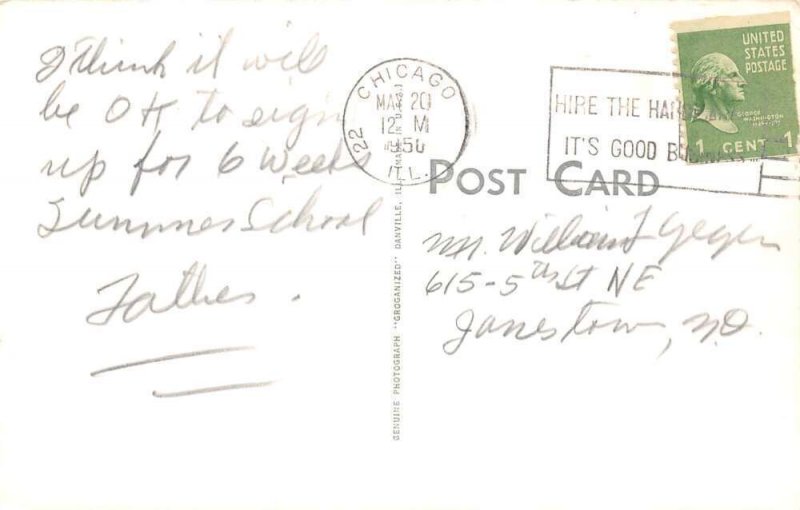 I think it will
be OK to sign
up for 6 weeks
Summer School
Father.
CHICAGO
22
MAR 20
12 M
1950
ILL.
HIRE THE
IT'S GOOD
UNITED
STATES
POSTAGE
GEORGE
WASHINGTON
1 CENT 1
POST CARD
GENUINE PHOTOGRAPH "GROGANIZED" DANVILLE, ILL. (MADE IN U.S.A.)
Mr. William J
615-5th St NE
Jamestown, N.D.